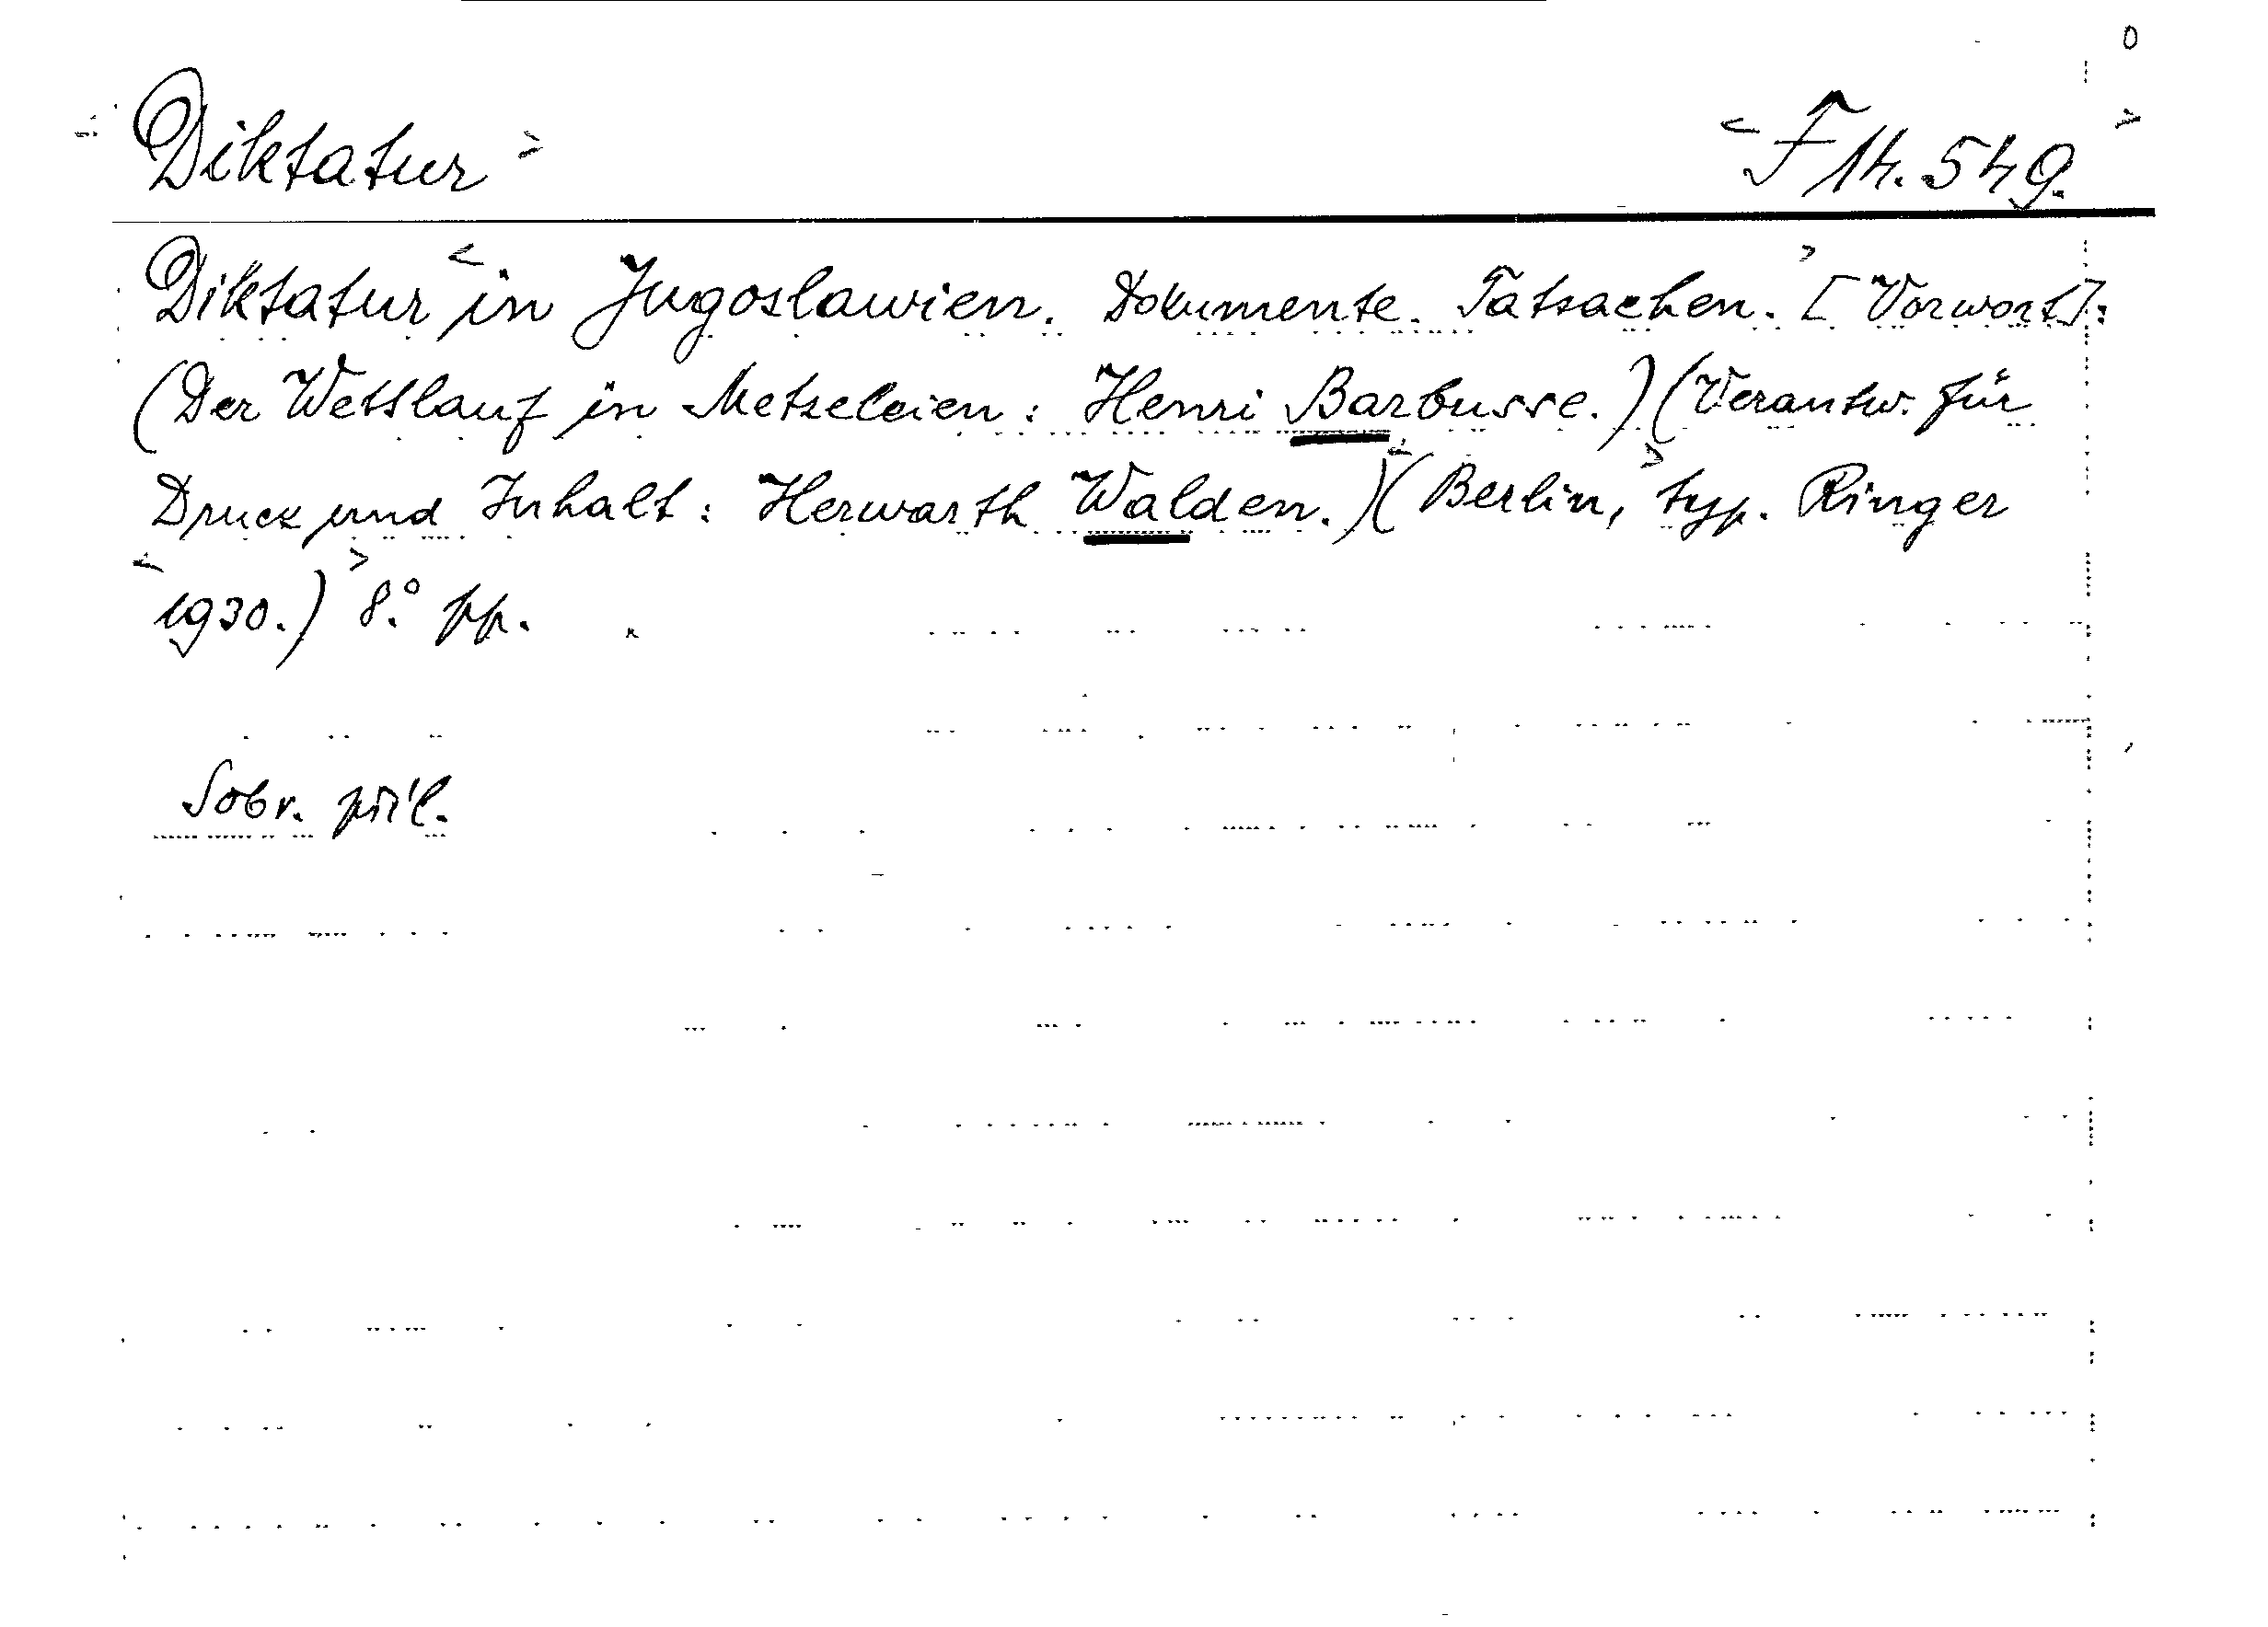 Diktatur F 14.549.
Diktatur in Jugoslawien. Dokumente. Tatsachen. [Vorwort]:
(Der Wettlauf in Metzeleien: Henri Barbusse.) (Verantw. für
Druck und Inhalt: Herwarth Walden.) (Berlin, typ. Ringer
1930.) 8.° pp.
Sobr. příl.